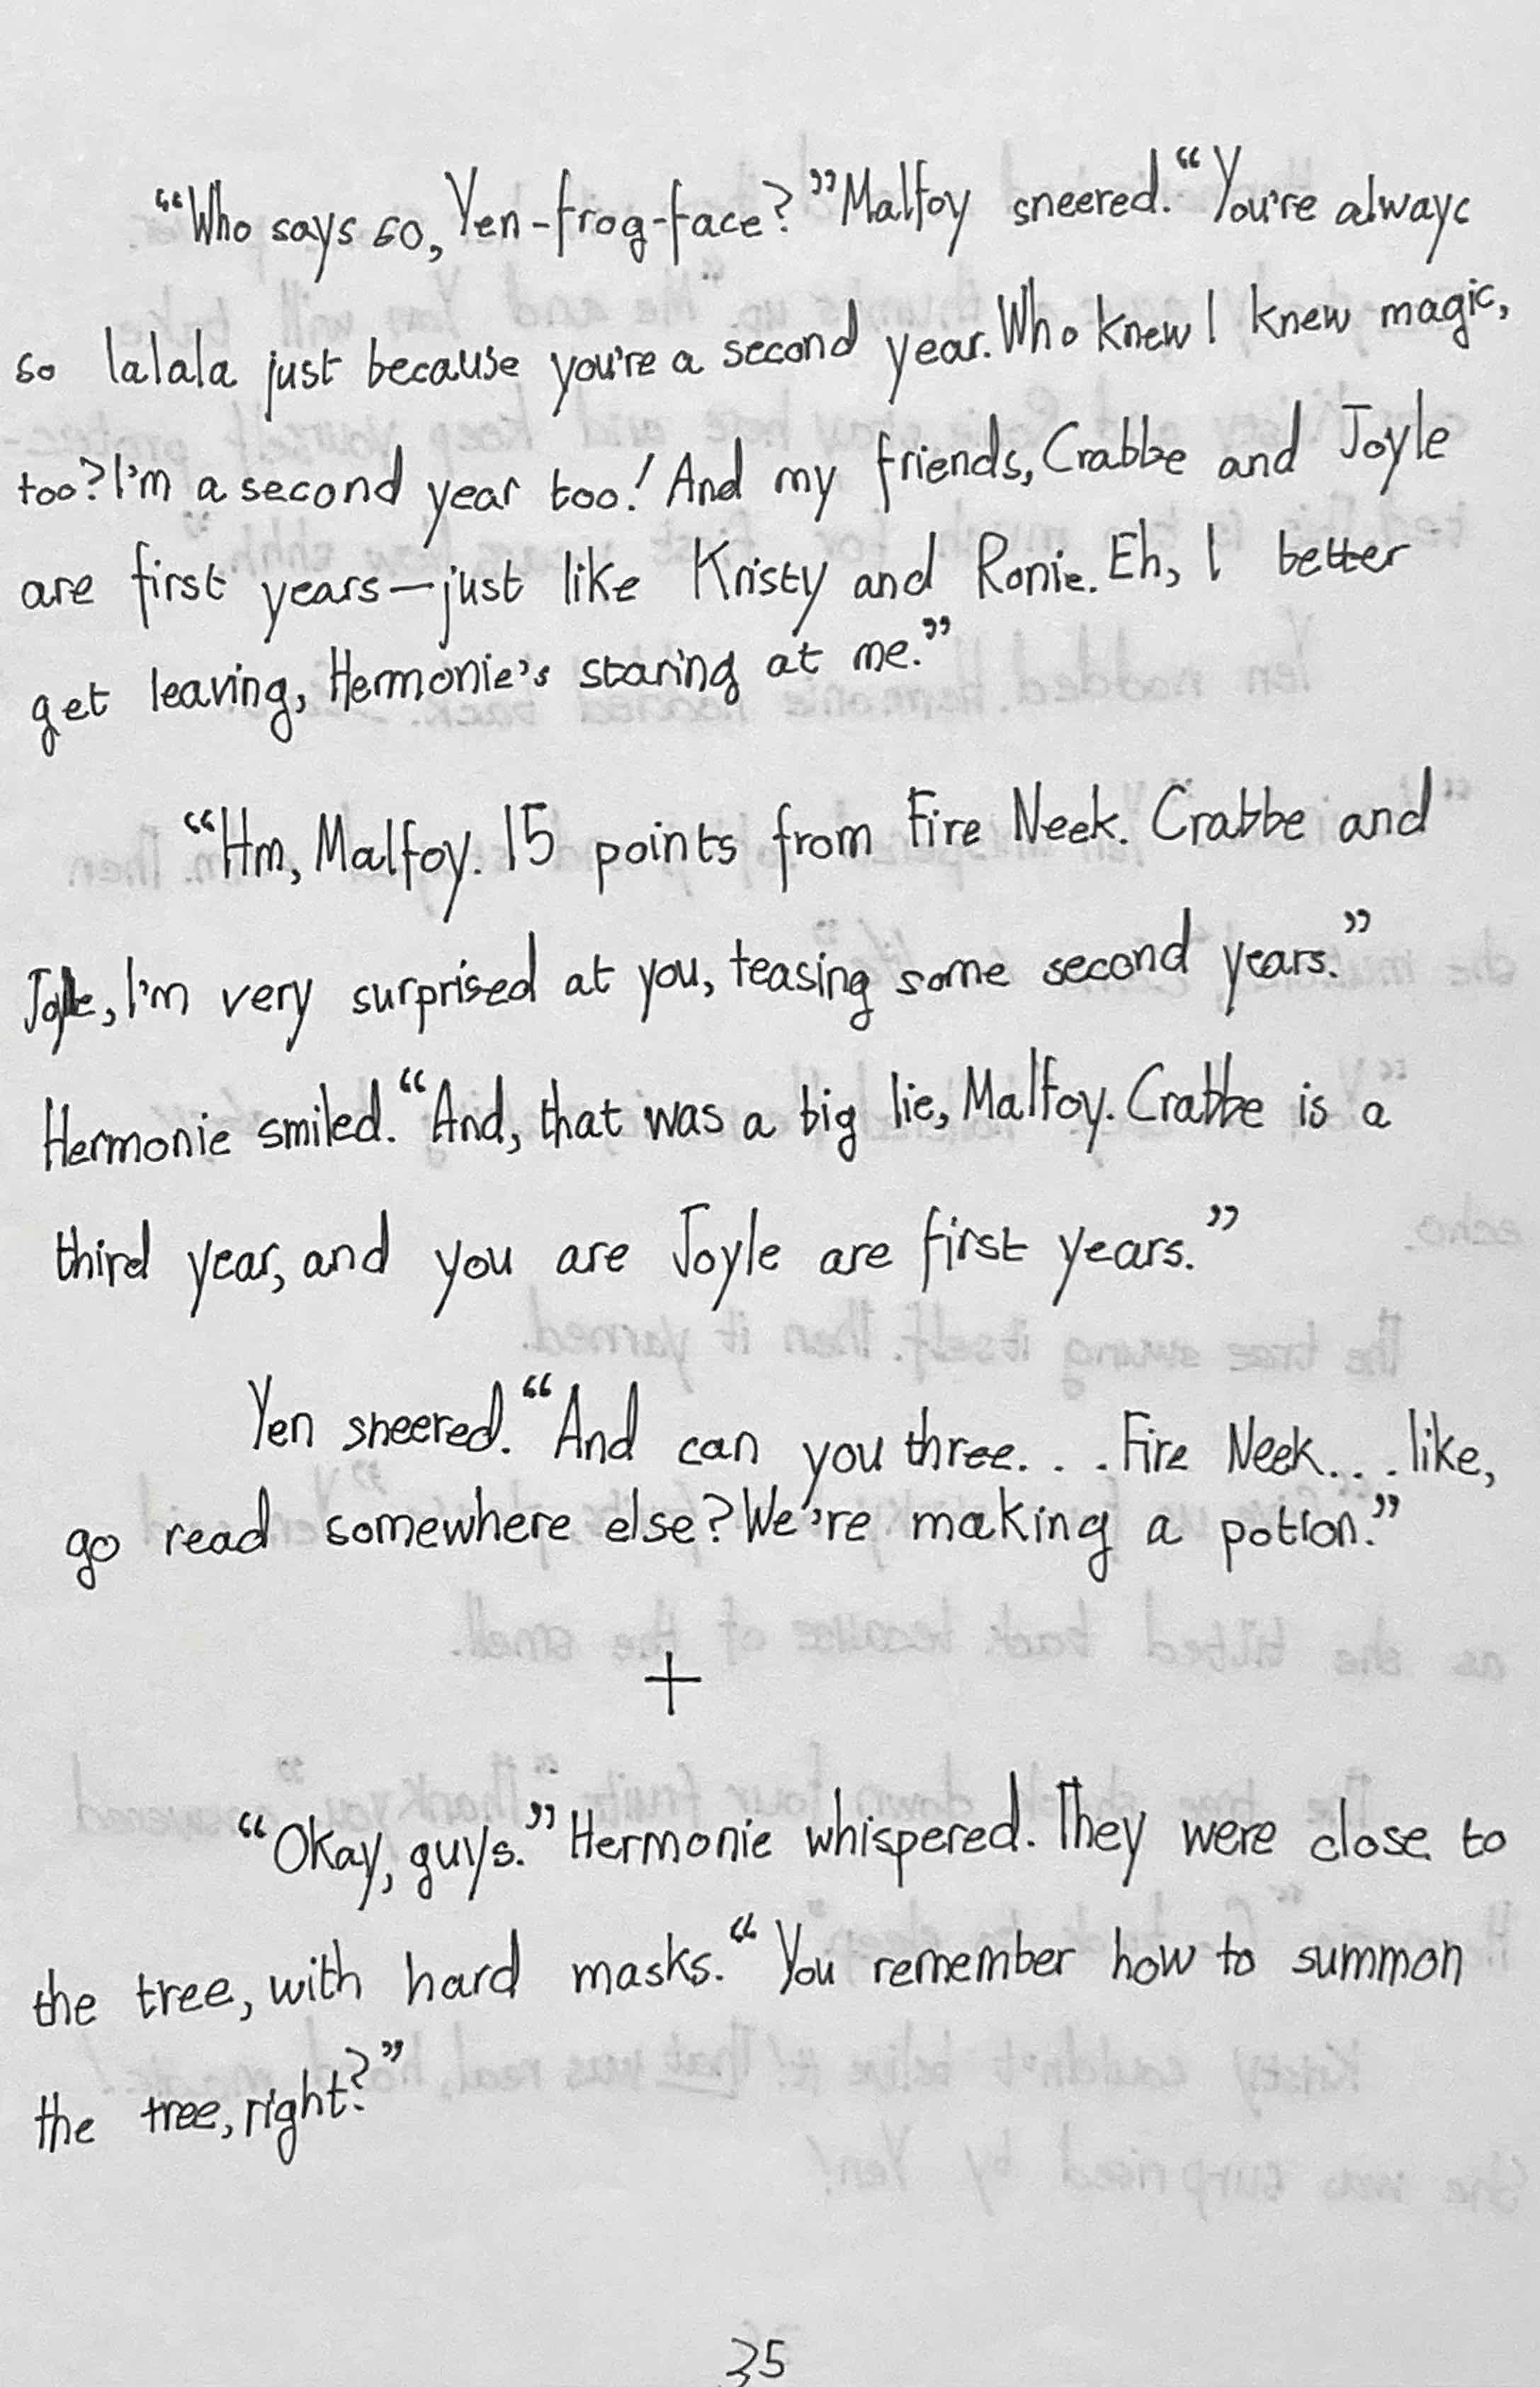 “Who says so, Yen-frog-face?” Malfoy sneered. “You're always
so lalala just because you're a second year. Who knew I knew magic,
too? I'm a second year too! And my friends, Crabbe and Joyle
are first years—just like Kristy and Ronie. Eh, I better
get leaving, Hermonie's staring at me.”
“Hm, Malfoy. 15 points from Fire Neek. Crabbe and
Joyle, I'm very surprised at you, teasing some second years.”
Hermonie smiled. “And, that was a big lie, Malfoy. Crabbe is a
third year, and you are Joyle are first years.”
Yen sneered. “And can you three. . . Fire Neek. . . like,
go read somewhere else? We're making a potion.”
+
“Okay, guys.” Hermonie whispered. They were close to
the tree, with hard masks. “You remember how to summon
the tree, right?”
35